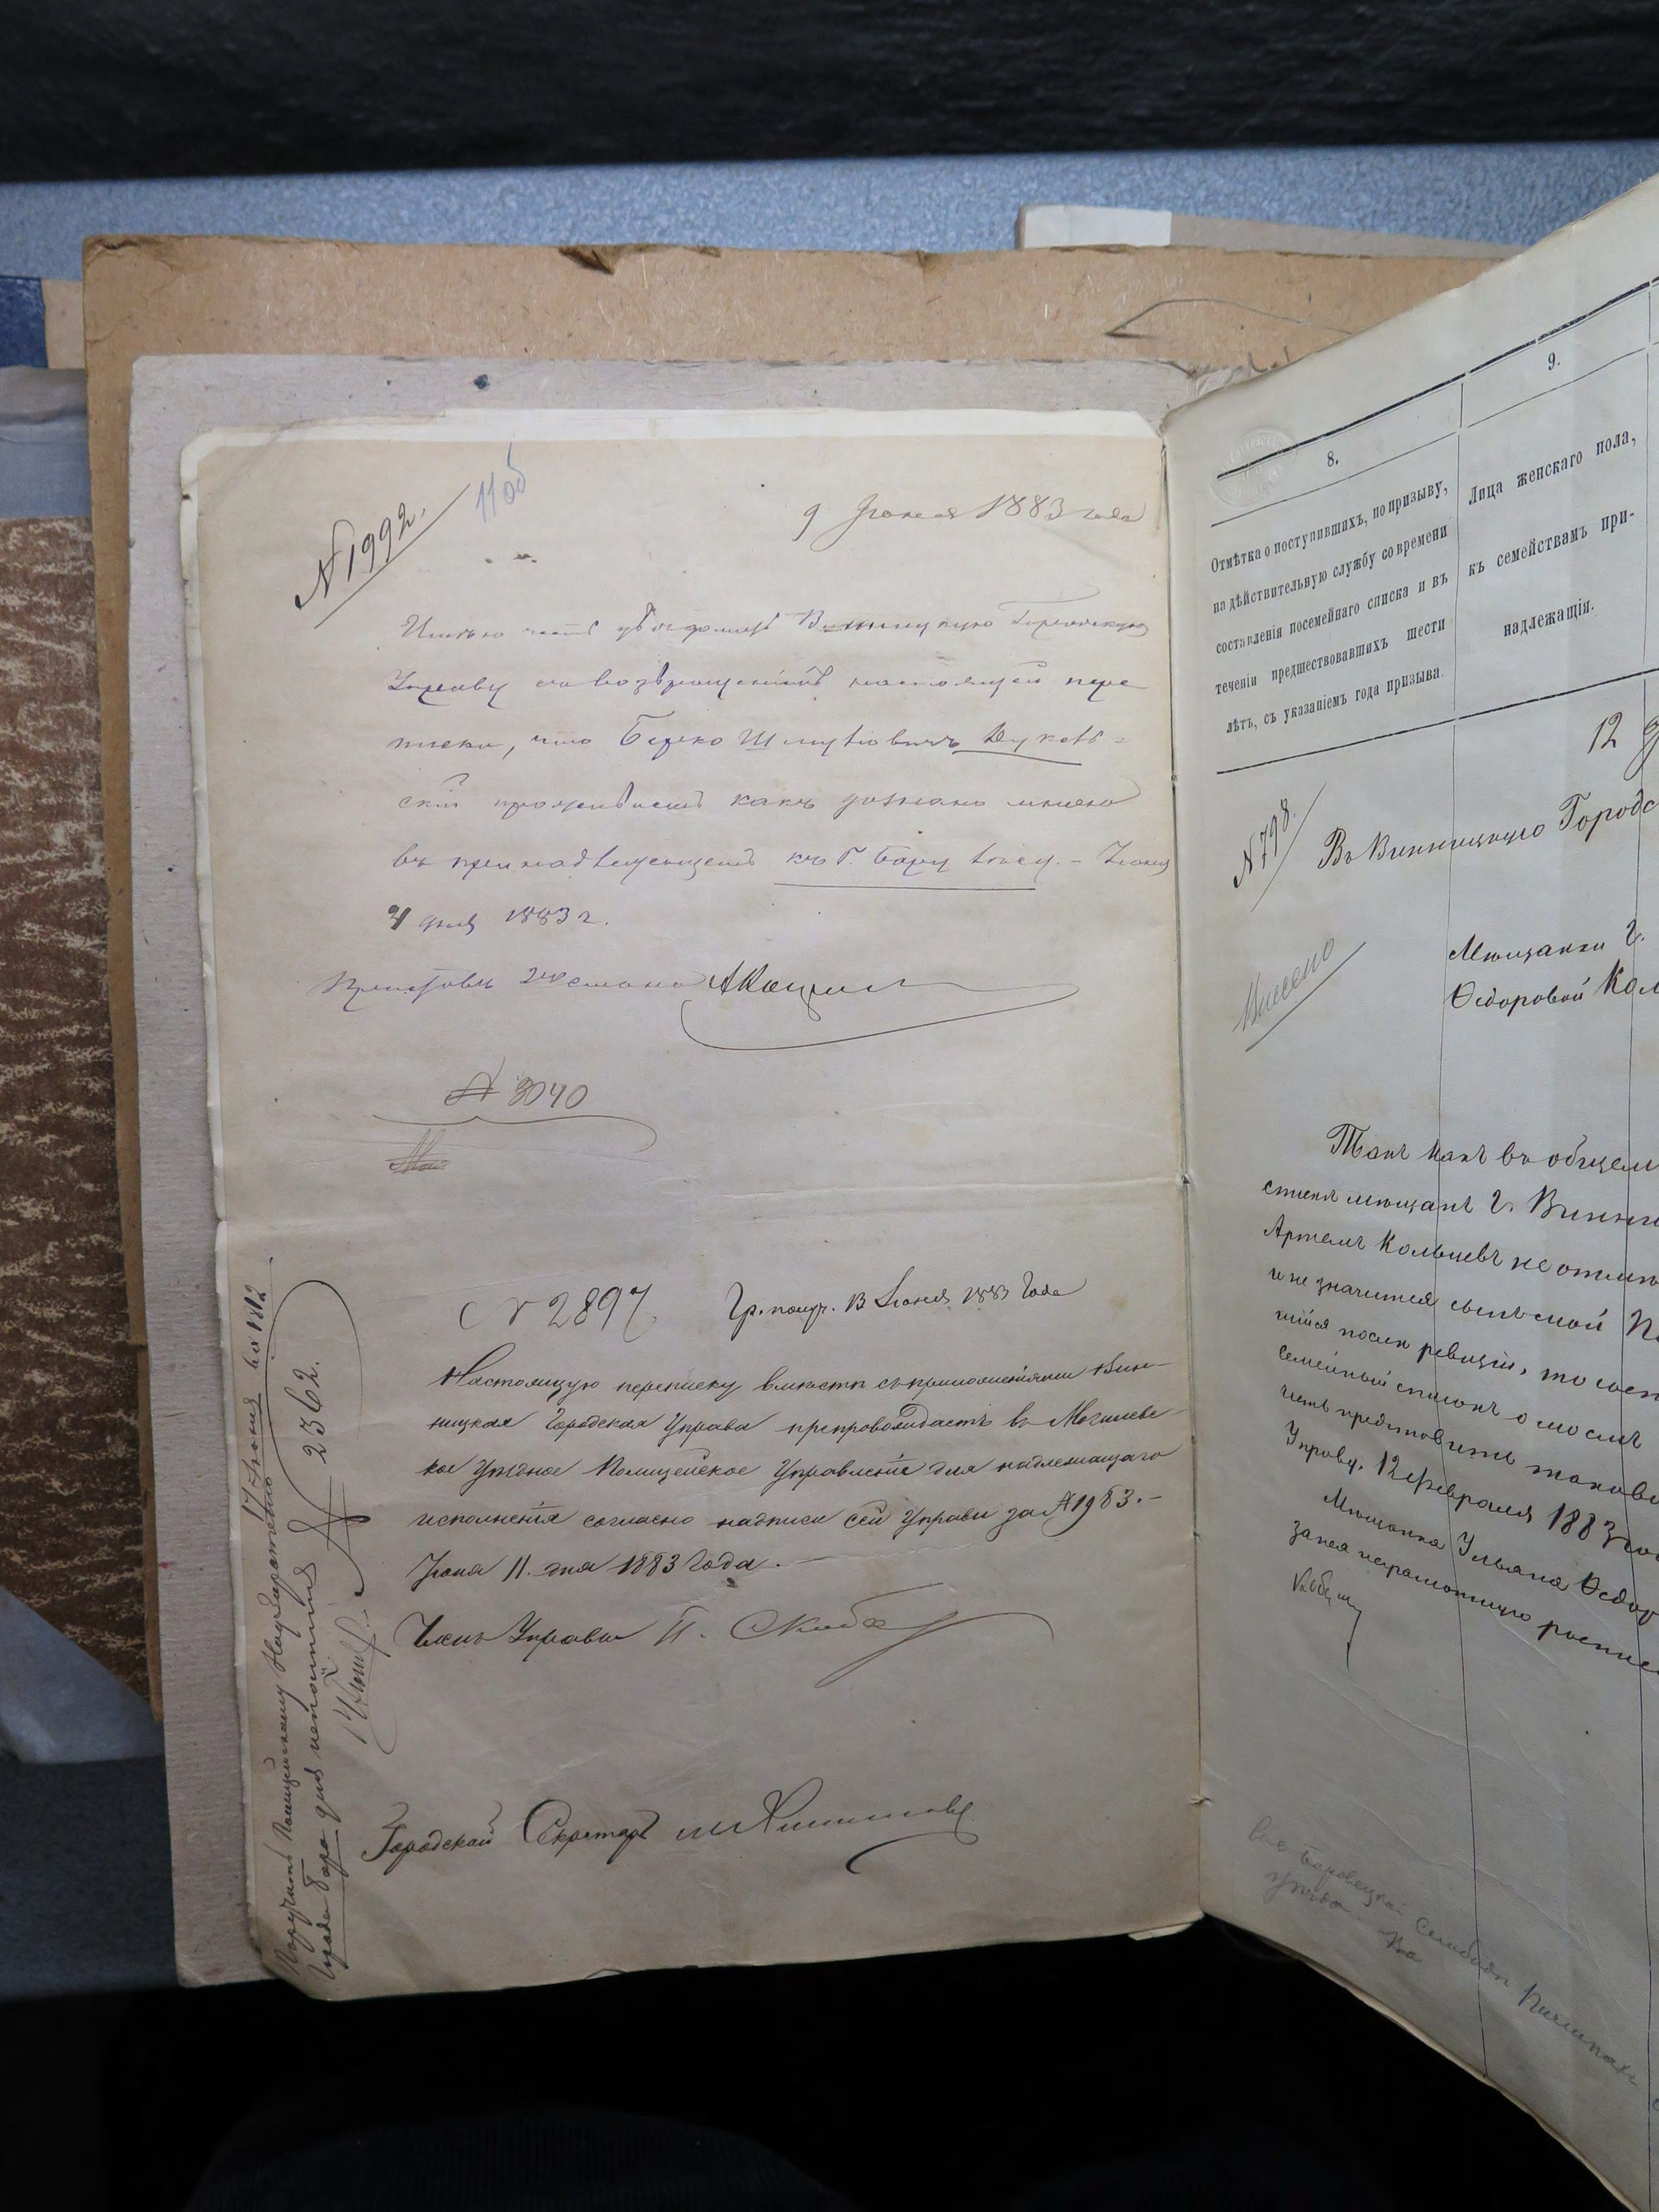 № 1992.
11об
9 Июня 1883 года
Имею честь уведомить Винницкую Городскую
Управу съ возвращеніемъ настоящей пере
писки, что Берко Шмулiовичъ Дуков=
скій проживаетъ какъ дознано мною
въ принадлежащемъ къ Г. Бару лѣсу. - Іюня
4 дня 1883 г.
Приставъ 2го стана
№ 3040
№ 2897
Гр. получ. 13 Іюня 1883 Года
Настоящую переписку вмѣстѣ съ приложеніями Вин-
ницкая Городская Управа препровождаетъ въ Могилевс-
кое Уѣздное Полицейское Управленіе для надлежащаго
исполненія согласно надписи сей Управы за № 1983.-
Іюня 11 дня 1883 Года.-
Членъ Управы П. Скиба
Городской Секретарь
17 Іюня
Поручить Полицейскому Надзирателю
Града Бара для исполненія
№ 2362.
8.
9.
Отмѣтка о поступившихъ, по призыву,
на дѣйствительную службу со времени
составленія посемейнаго списка и въ
теченіи предшествовавшихъ шести
лѣтъ, съ указаніемъ года призыва.
Лица женскаго пола,
къ семействамъ при-
надлежащія.
12
№ 798.
Въ Винницкую Городс
Внесено
Мѣщанки г.
Ѳедоровой Кол
Такъ какъ въ общем
стикѣ мѣщанъ г. Винни
Артемъ Кольцевъ не отмѣ
и не значится
шійся послѣ ревизіи, то
семейный списокъ о моемъ
честь представить таков
Управу. 12 Февраля 1883 го
Мѣщанка Ульяна Ѳедор
за нея неграмотную роспис